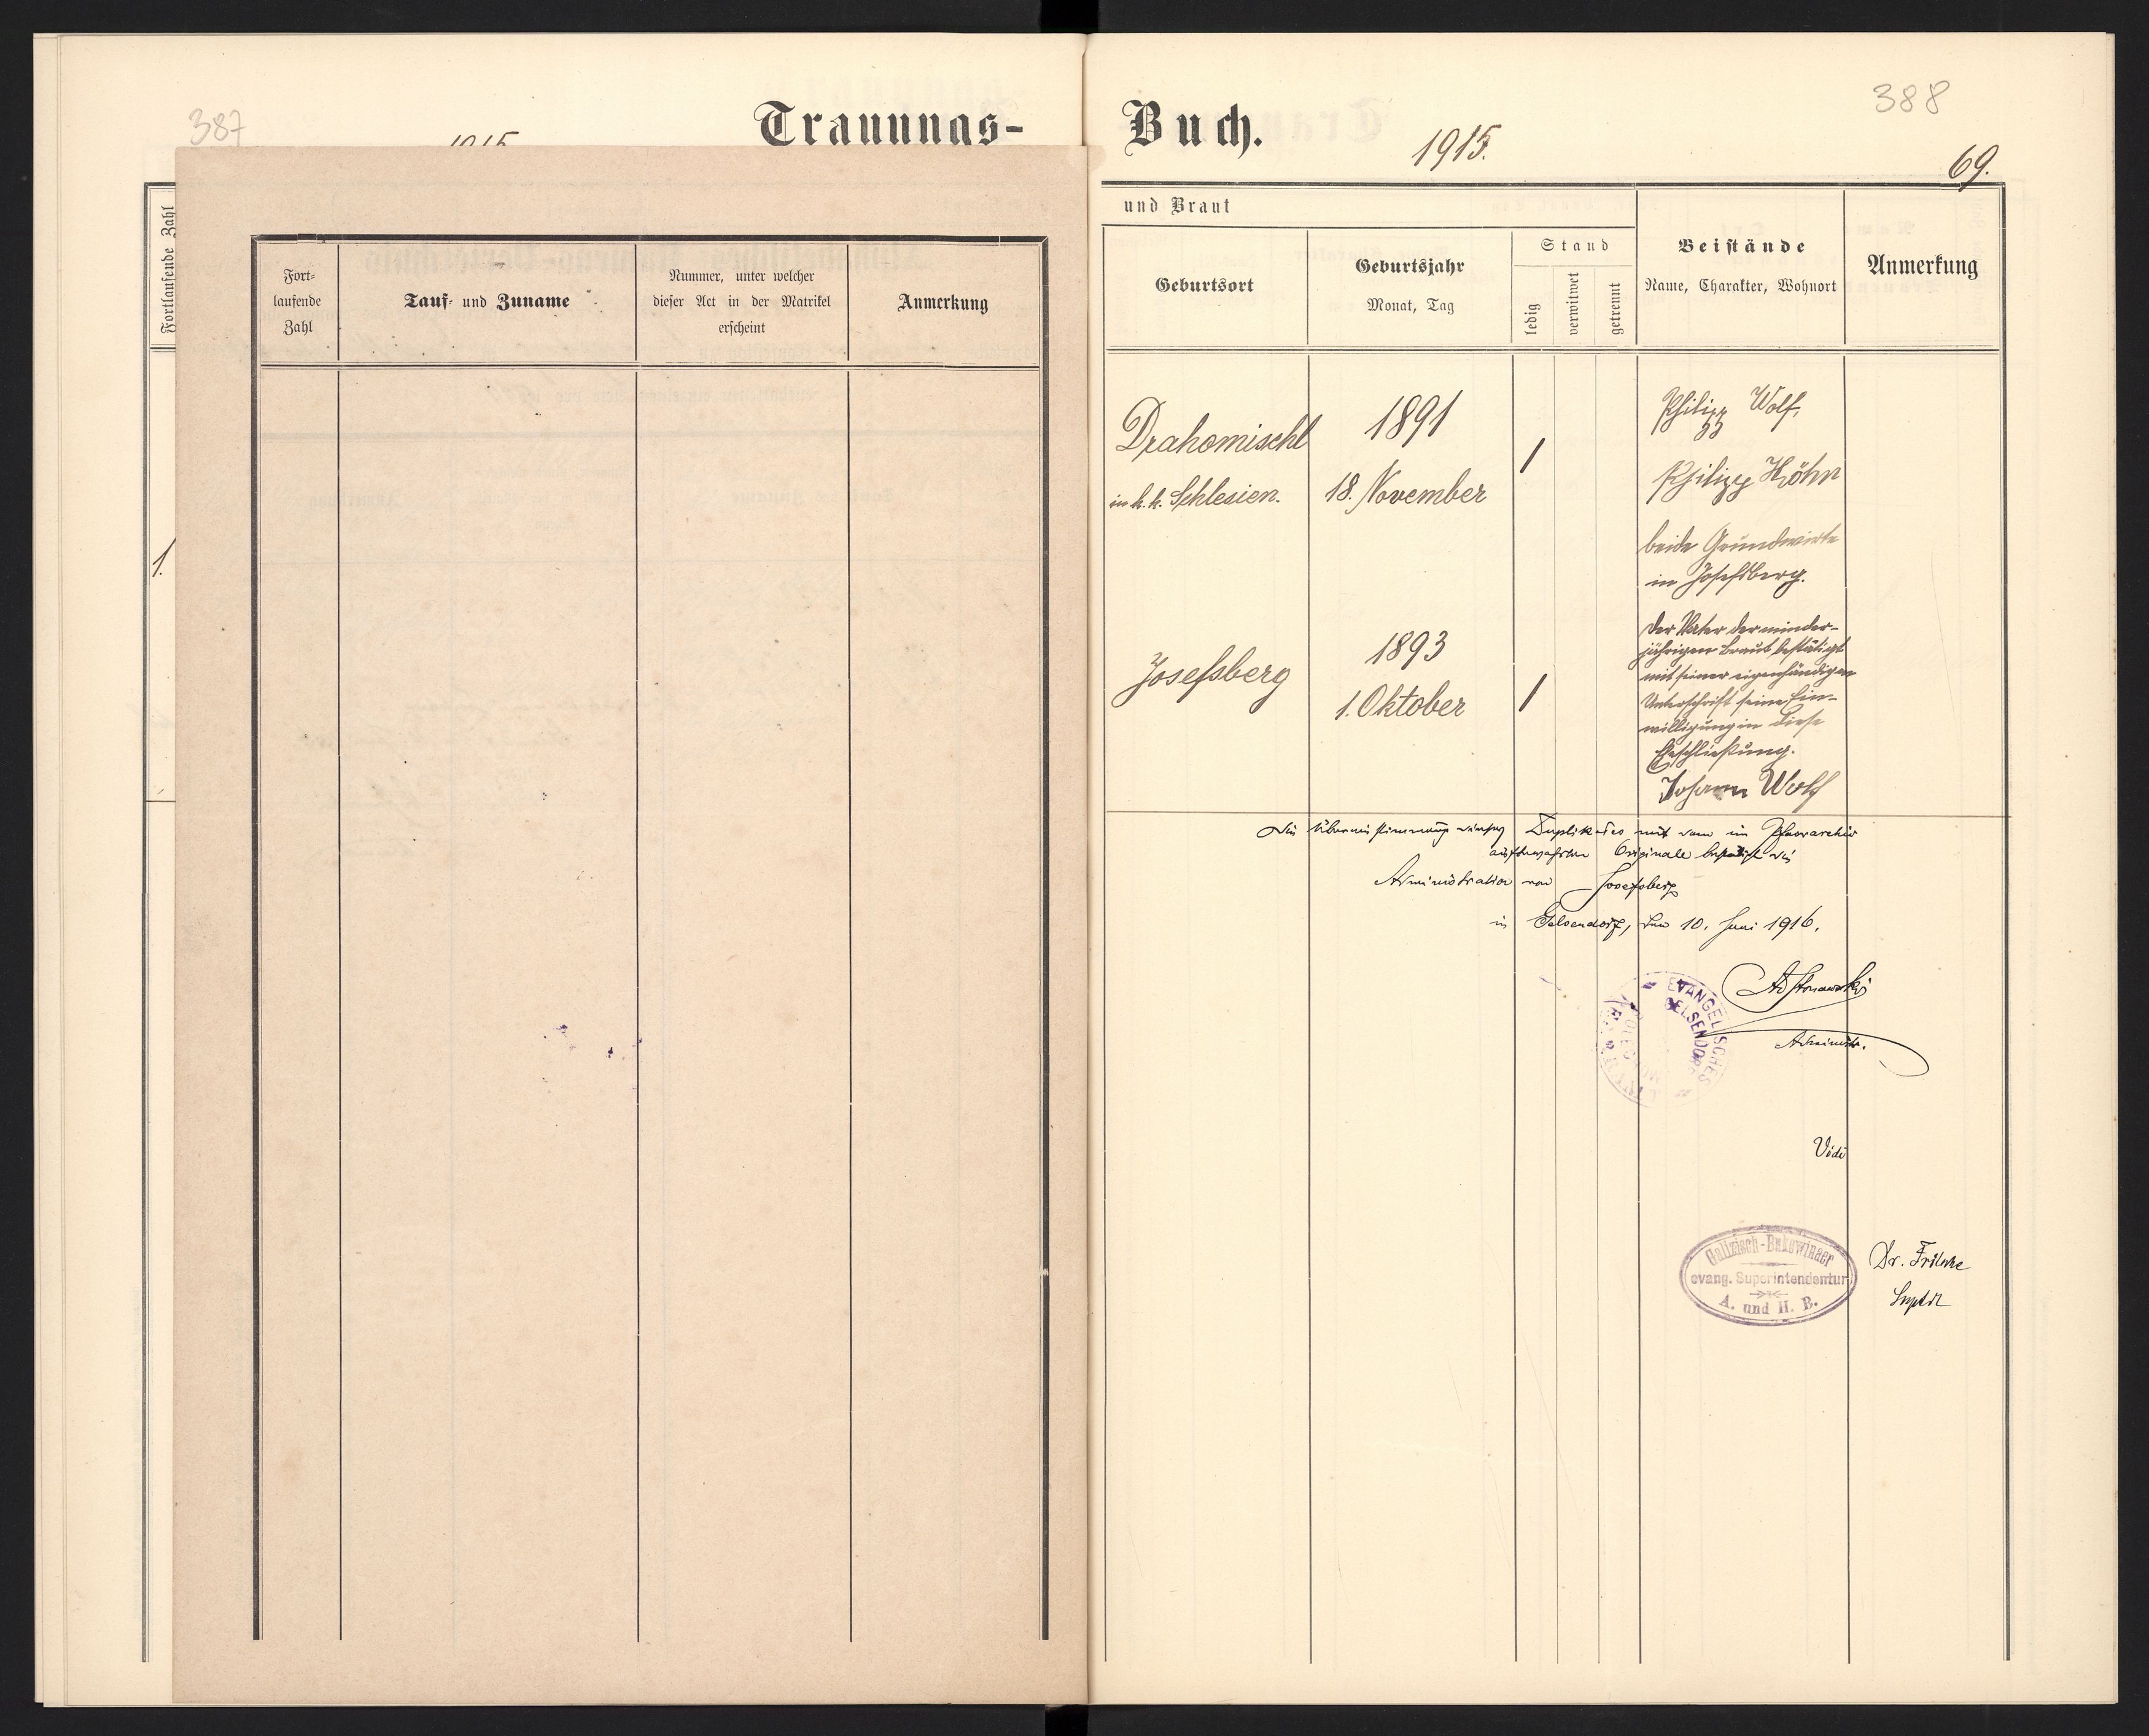 387
1915
Trauungs-
Fortlaufende Zahl
1.
Fort-
laufende
Zahl
Tauf- und Zuname
Nummer, unter welcher
dieser Act in der Matrikel
erscheint
Anmerkung
388
Buch.
1915.
69.
und Braut
Geburtsort
Geburtsjahr
Monat, Tag
Stand
ledig
verwitwet
getrennt
Beistände
Name, Charakter, Wohnort
Anmerkung
Drahomischl
in k. k. Schlesien.
1891
18. November
/
Philipp Wolf,
Philipp Höhn
beide Grundwirte
in Josefsberg.
Josefsberg
1893
1. Oktober
/
Der Vater der minder-
jährigen Braut bestätigt
mit seiner eigenhändigen
Unterschrift seine Ein-
willigung in diese
Eheschließung.
Johann Wolf
Die Übereinstimmung dieses Duplikates mit dem im Pfarrarchiv
aufbewahrten Originale bestätigt die
Administration von Josefsberg
in Gelsendorf, den 10. Juni 1916.
Administr.
EVANGELISCHES
GELSENDORF
Vidi
Galizisch-Bukowinaer
evang. Superintendentur
A. und H. B.
Dr. Fritsche
Suptdt